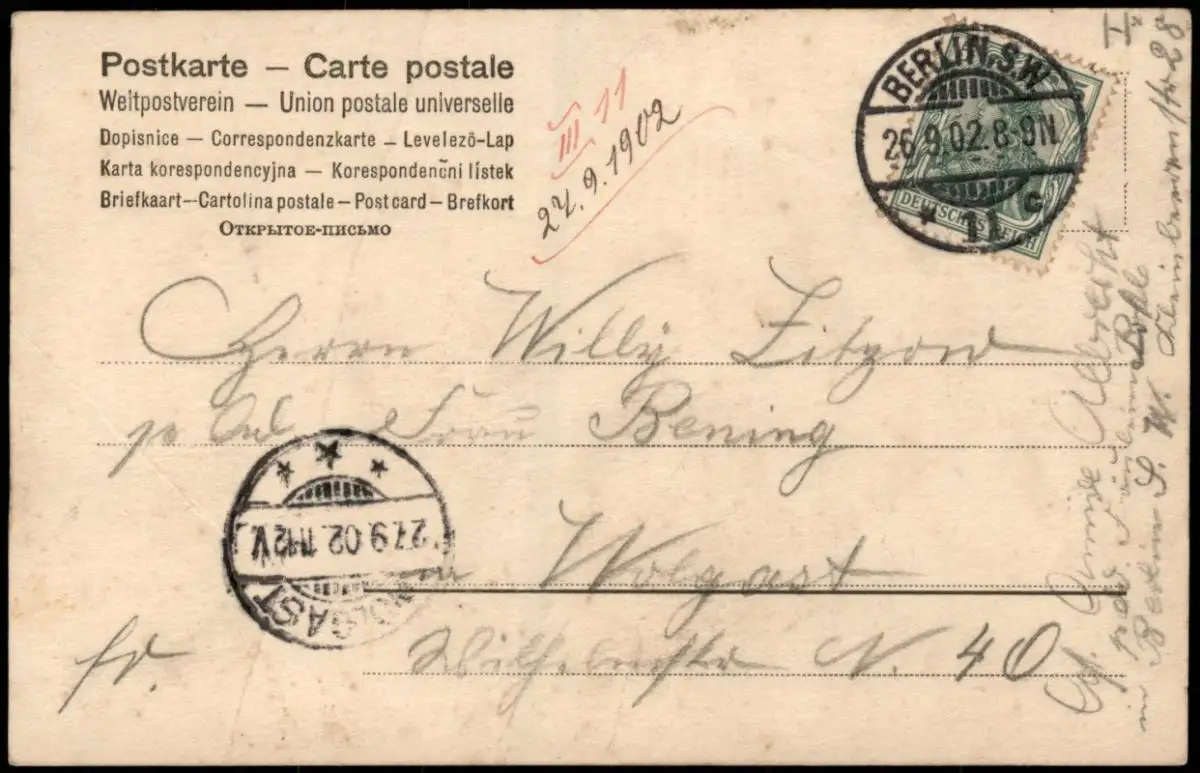 Postkarte — Carte postale
Weltpostverein — Union postale universelle
Dopisnice — Correspondenzkarte — Levelező-Lap
Karta korespondencyjna — Korespondenčni lístek
Briefkaart—Cartolina postale—Post card—Brefkort
Открытое-письмо
III 11
27.9.1902
BERLIN. S.W.
26.9.02.8-9N
* 11 c
DEUTSCHES REICH
Herrn Willy
Frau Bening
27.9.02.11-12V.
WOLGAST
in Wolgast
fr. Wilhelmstr N. 40
Albrecht
in Berlin S. W.
28
II